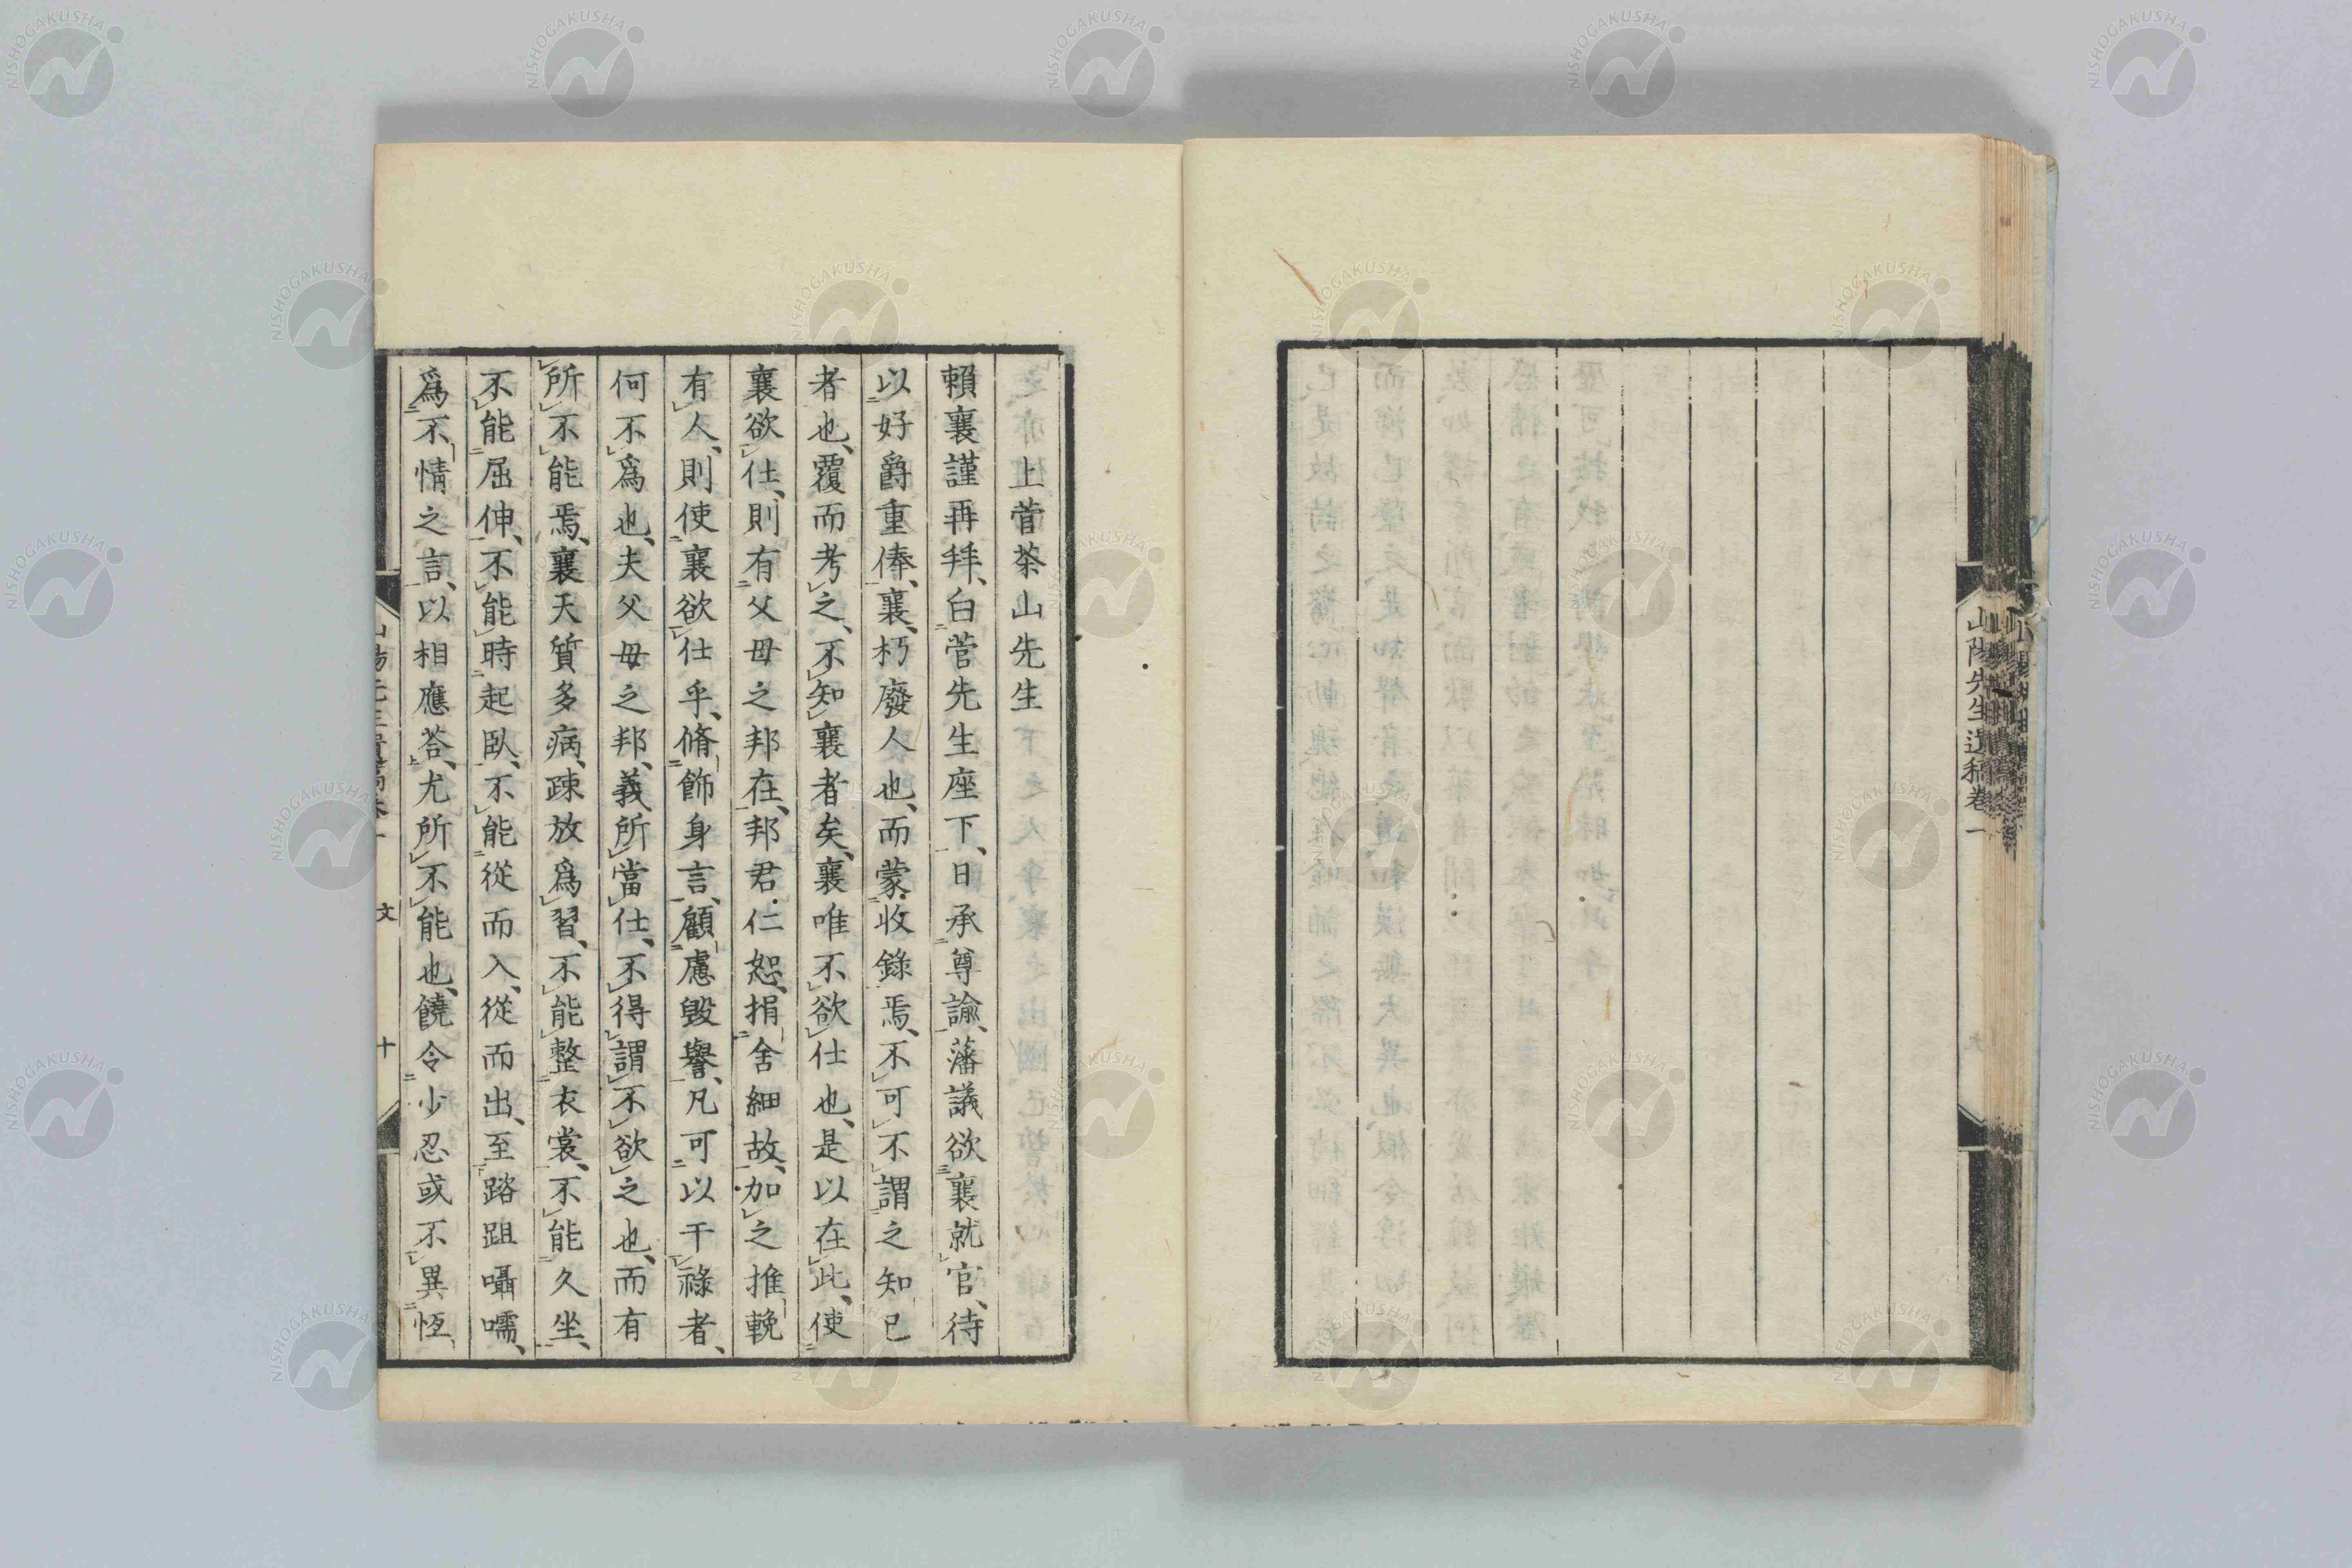 山陽先生遺稿卷一
上菅茶山先生
賴襄謹再拜、白菅先生座下、日承尊諭、藩議欲襄就官、待
以好爵重俸、襄朽廢人也、而蒙收錄焉、不可不謂之知己
者也、覆而考之、不知襄者矣、襄唯不欲仕也、是以在此、使
襄欲仕、則有父母之邦在、邦君仁恕、捐舍細故、加之推輓
有人、則使襄欲仕乎、脩飾身言、顧慮毀譽、凡可以干祿者、
何不爲也、夫父母之邦、義所當仕、不得謂不欲之也、而有
所不能焉、襄天質多病、疎放爲習、不能整衣裳、不能久坐、
不能屈伸、不能時起臥、不能從而入、從而出、至踣跙囁嚅、
爲不情之言、以相應荅、尤所不能也、饒令少忍或不異恆
文
十
NISHOGAKUSHA